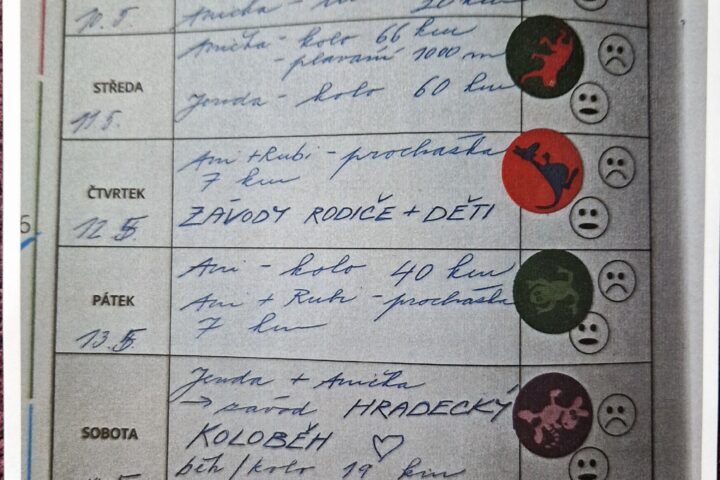 10.5.
Anička -
20 km
STŘEDA
11.5.
Anička - kolo 66 km
- plavaní 1000 m
Jenda - kolo 60 km
ČTVRTEK
12.5.
Ani + Rubi - prochaška
7 km
ZÁVODY RODIČE + DĚTI
PÁTEK
13.5.
Ani - kolo 40 km
Ani + Rubi - prochaška
7 km
SOBOTA
Jenda + Anička
→ závod HRADECKÝ
KOLOBĚH ♡
běh/kolo 19 km